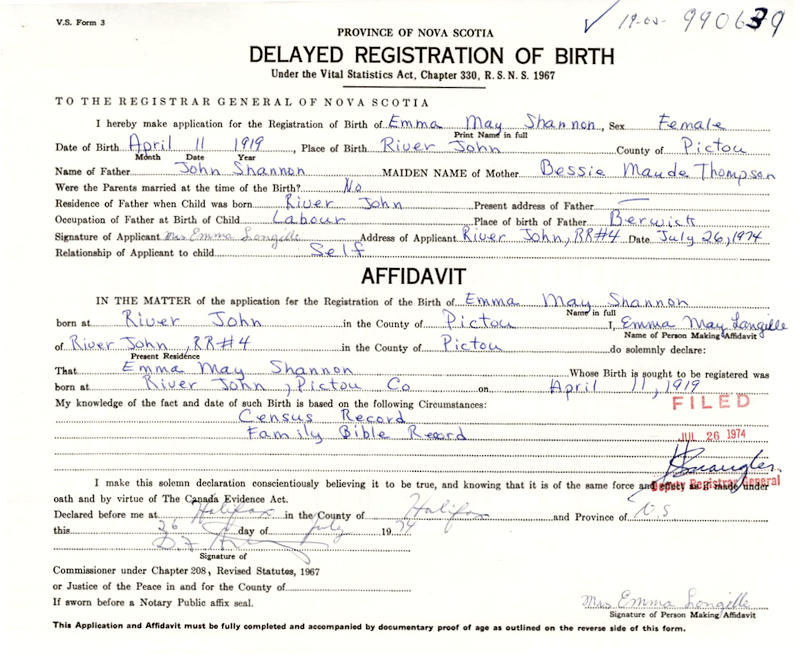 V.S. Form 3
19-05- 990639
PROVINCE OF NOVA SCOTIA
DELAYED REGISTRATION OF BIRTH
Under the Vital Statistics Act, Chapter 330, R.S.N.S. 1967
TO THE REGISTRAR GENERAL OF NOVA SCOTIA
I hereby make application for the Registration of Birth of Emma May Shannon, Sex Female
Print Name in full
Date of Birth April 11 1919, Place of Birth River John County of Pictou
Month Date Year
Name of Father John Shannon MAIDEN NAME of Mother Bessie Maude Thompson
Were the Parents married at the time of the Birth? No
Residence of Father when Child was born River John Present address of Father —
Occupation of Father at Birth of Child Labour Place of birth of Father Berwick
Signature of Applicant Mrs Emma Langille Address of Applicant River John, RR#4 Date July 26, 1974
Relationship of Applicant to child Self
AFFIDAVIT
IN THE MATTER of the application for the Registration of the Birth of Emma May Shannon
Name in full
born at River John in the County of Pictou I, Emma May Langille
Name of Person Making Affidavit
of River John, RR#4 in the County of Pictou do solemnly declare:
Present Residence
That Emma May Shannon Whose Birth is sought to be registered was
born at River John, Pictou Co on April 11, 1919
My knowledge of the fact and date of such Birth is based on the following Circumstances:
FILED
Census Record
Family Bible Record
JUL 26 1974
Deputy Registrar General
I make this solemn declaration conscientiously believing it to be true, and knowing that it is of the same force and effect as if made under
oath and by virtue of The Canada Evidence Act.
Declared before me at Halifax in the County of Halifax and Province of N.S
this 26 day of July 1974
Signature of
Commissioner under Chapter 208, Revised Statutes, 1967
or Justice of the Peace in and for the County of
If sworn before a Notary Public affix seal.
Mrs Emma Langille
Signature of Person Making Affidavit
This Application and Affidavit must be fully completed and accompanied by documentary proof of age as outlined on the reverse side of this form.